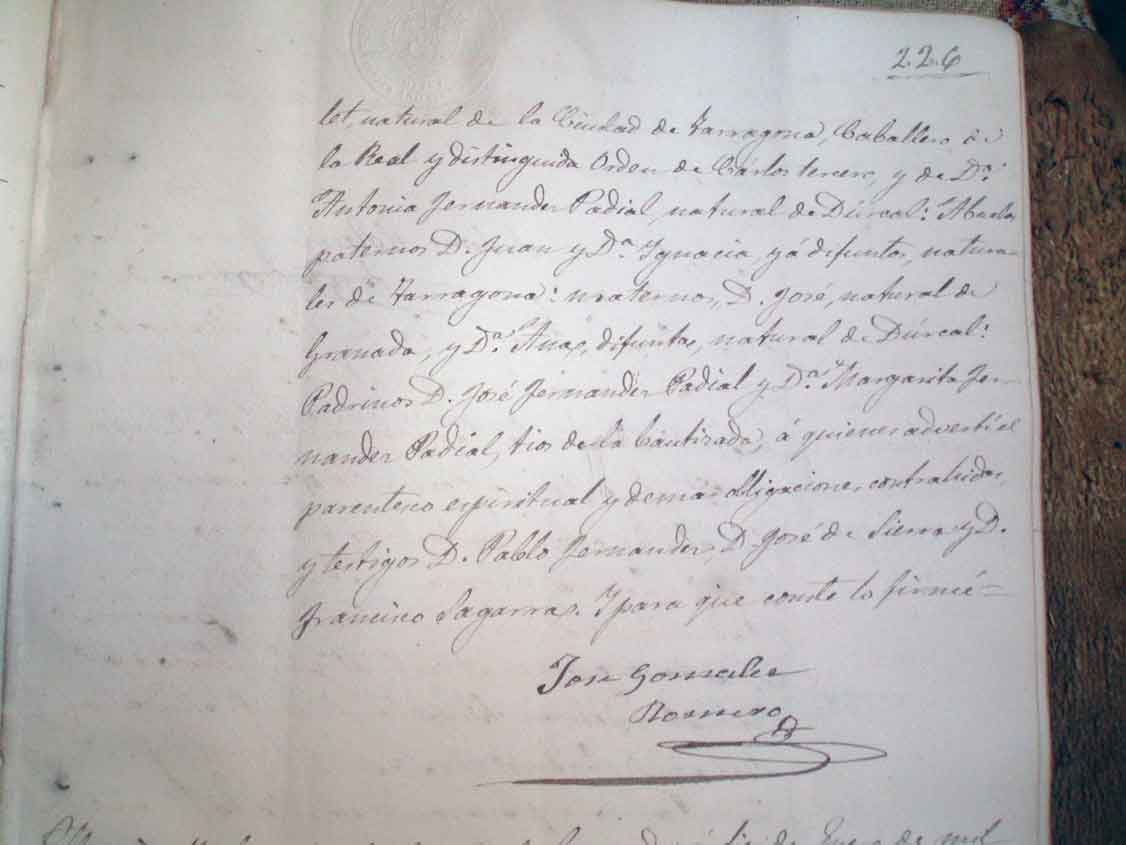 226
let, natural de la Ciudad de Tarragona, Caballero de
la Real y distinguida Orden de Cárlos tercero, y de D.ª
Antonia Fernandez Padial, natural de Dúrcal: Abuelos
paternos D. Juan y D.ª Ignacia, yá difuntos, natura-
les de Tarragona: maternos, D. José, natural de
Granada, y D.ª Ana, difunta, natural de Dúrcal:
Padrinos D. José Fernandez Padial y D.ª Margarita Fer-
nandez Padial, tios de la bautizada, á quienes advertí el
parentesco espiritual y demas obligaciones contrahidas,
y testigos D. Pablo Fernandez, D. José de Sierra y D.
Francisco Sagarra. Y para que conste lo firmé=
José Gonzalez
Romero
de Enero de mil